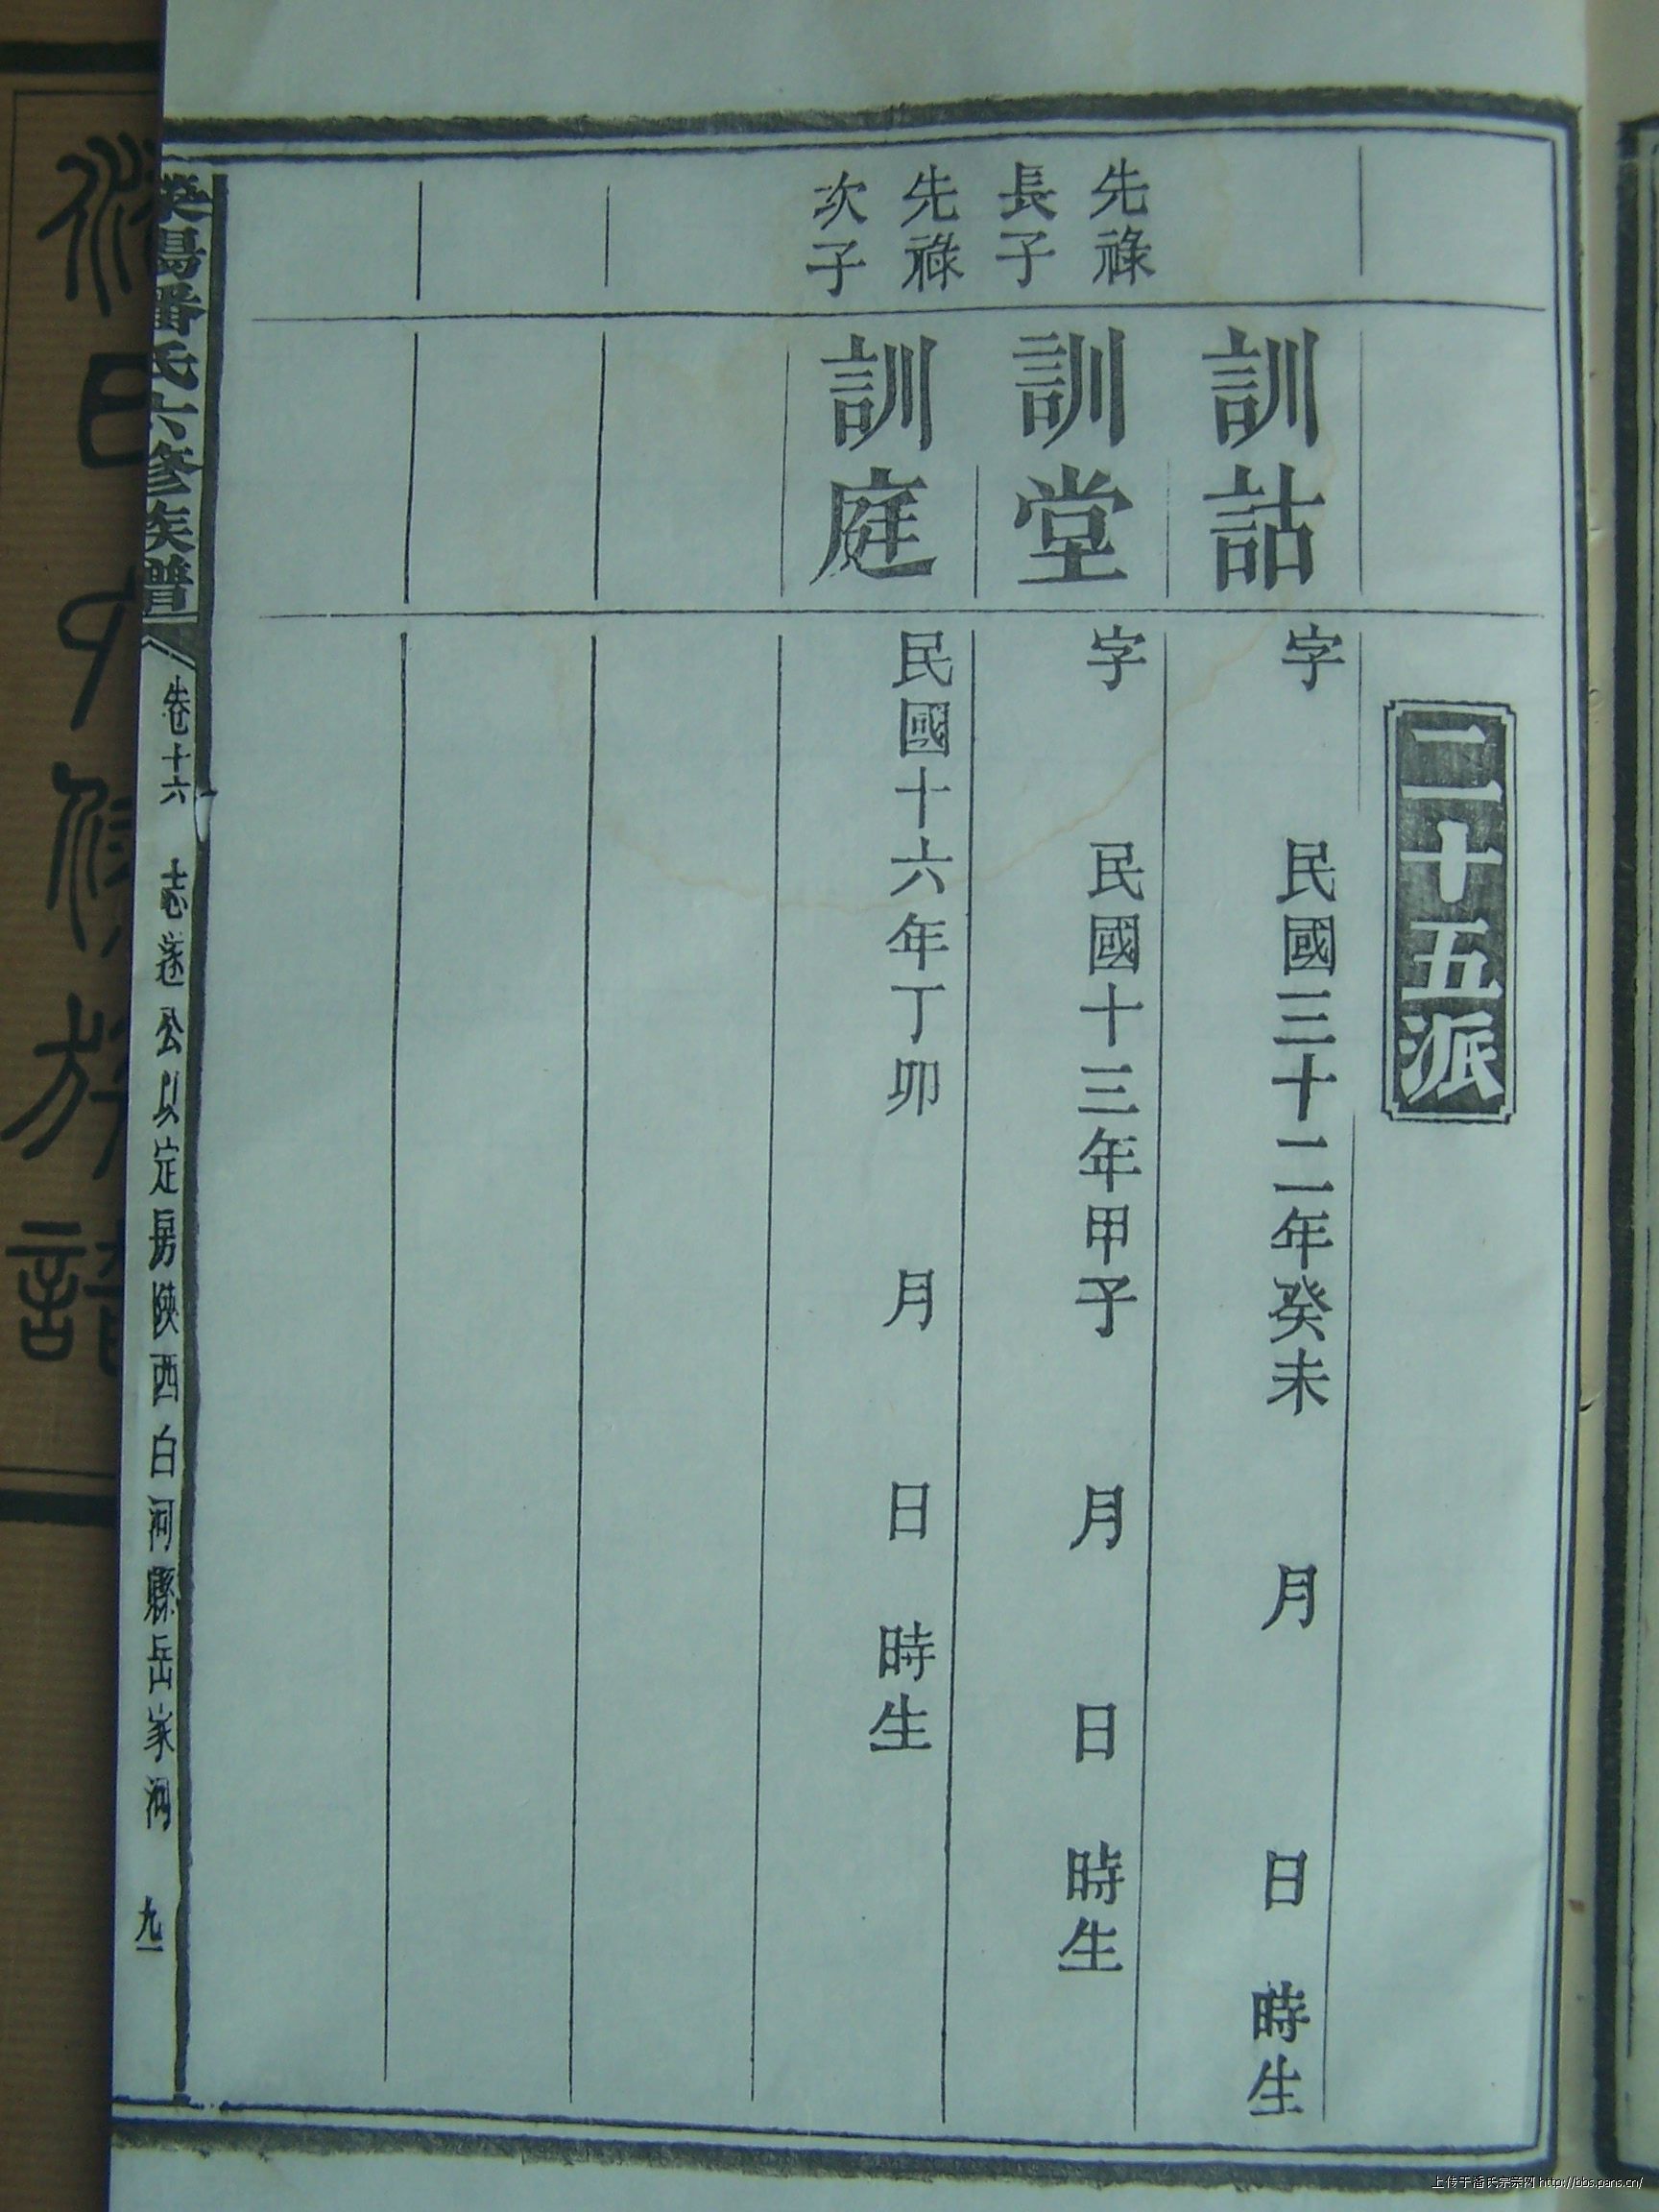 二十五派
訓詁
字 民國三十二年癸未 月 日 時生
先祿
長子
訓堂
字 民國十三年甲子 月 日 時生
先祿
次子
訓庭
民國十六年丁卯 月 日 時生
滎陽潘氏六修族譜
卷十六 志遂公以定房陝西白河縣岳家河 九一
上传于潘氏宗亲网 http://bbs.pans.cn/